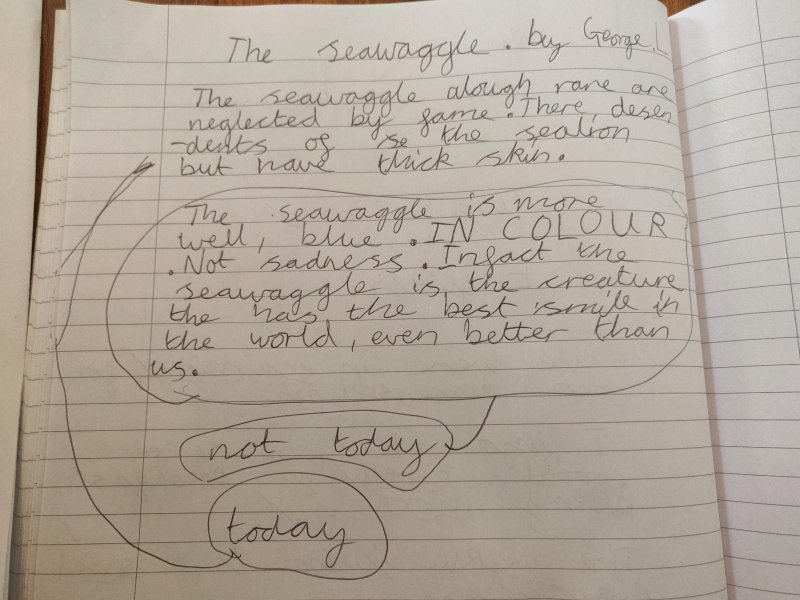 The seawaggle. by George.L
The seawaggle alough rare are
neglected by fame. There, desen
-dents of se the sealion
but have thick skin.
The seawaggle is more
well, blue. IN COLOUR
. Not sadness. Infact the
seawaggle is the creature
the has the best smile in
the world, even better than
us.
not today
today